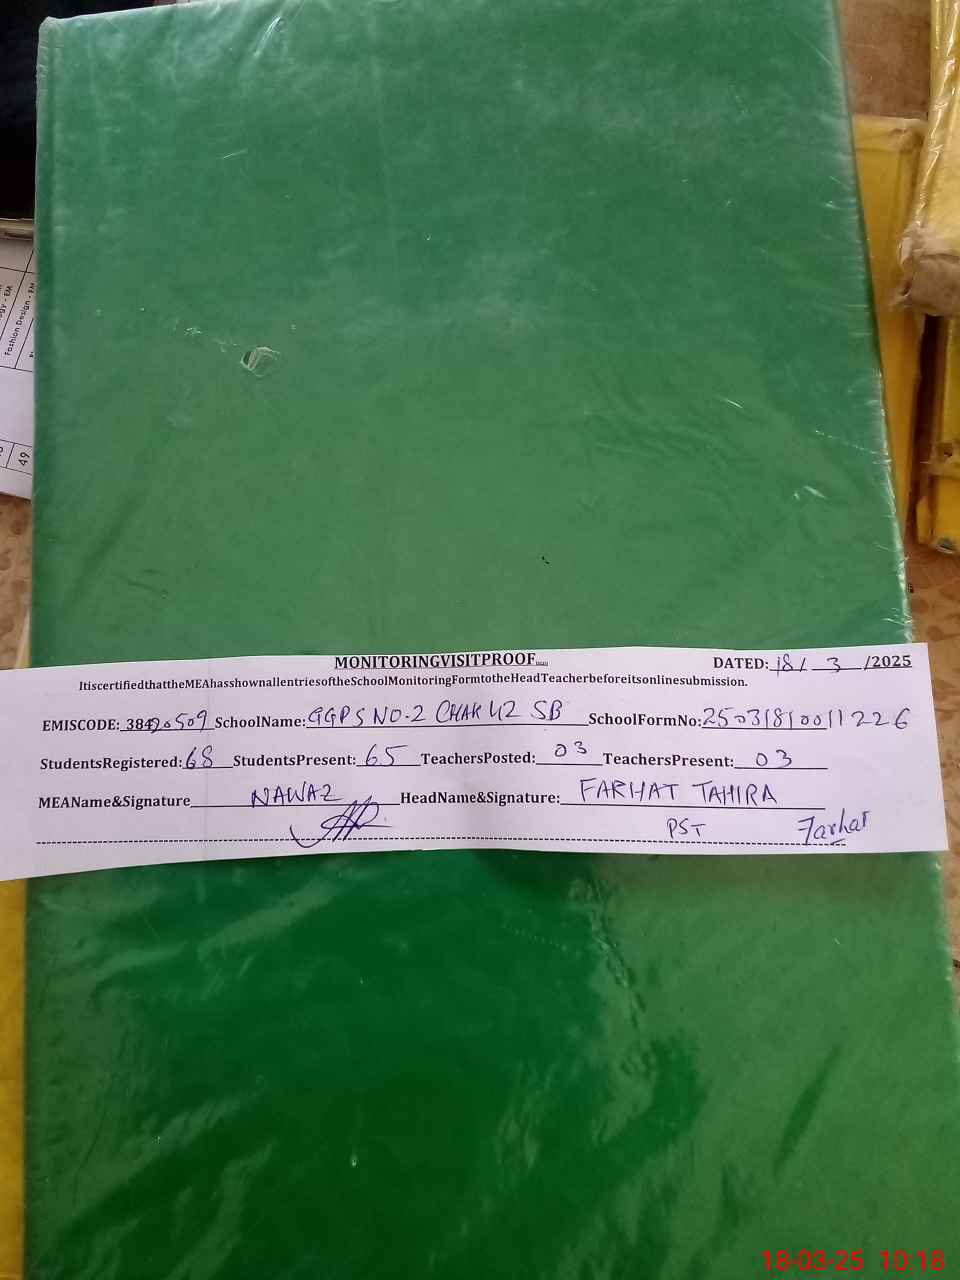 ogy - EM
Fashion Design - EM
49
MONITORINGVISITPROOF
DATED: 18 / 3 /2025
ItiscertifiedthattheMEAhasshownallentriesoftheSchoolMonitoringFormtotheHeadTeacherbeforeitsonlinesubmission.
EMISCODE: 38420509 SchoolName: GGPS NO.2 CHAK 42 SB SchoolFormNo: 25031810011226
StudentsRegistered: 68 StudentsPresent: 65 TeachersPosted: 03 TeachersPresent: 03
MEAName&Signature NAWAZ HeadName&Signature: FARHAT TAHIRA
PST Farhat
18-03-25 10:18